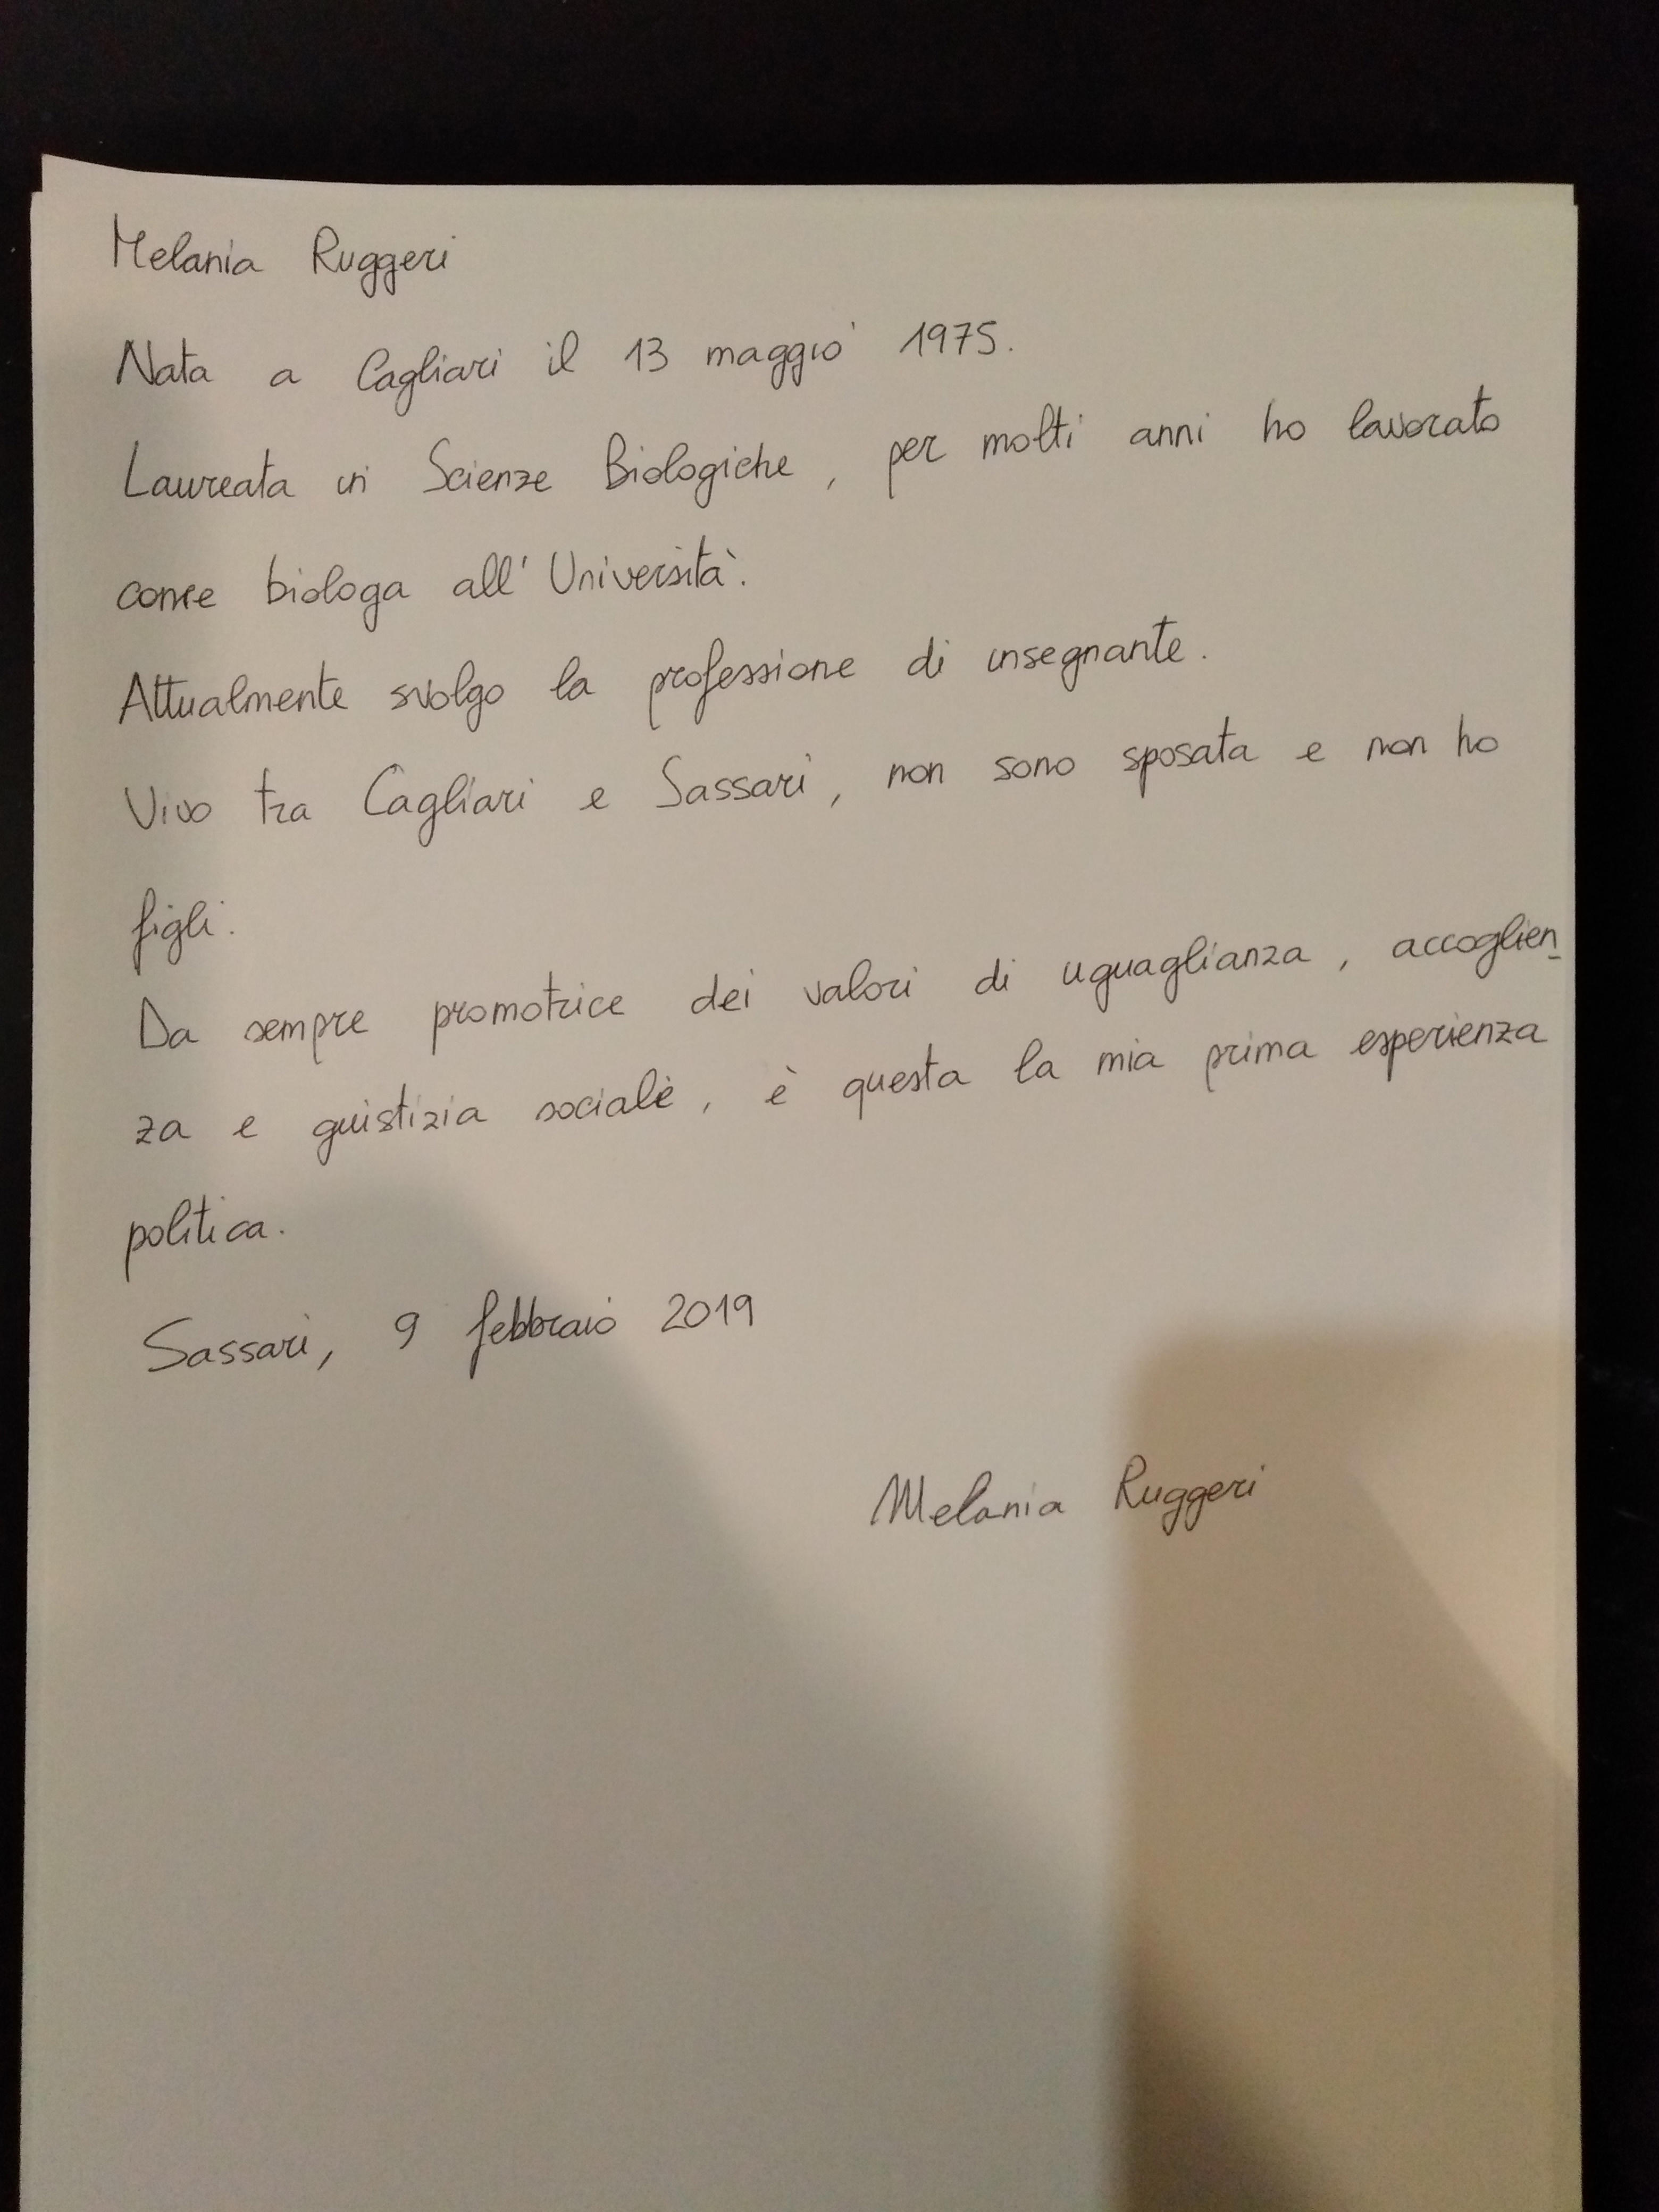 Melania Ruggeri
Nata a Cagliari il 13 maggio 1975.
Laureata in Scienze Biologiche, per molti anni ho lavorato
come biologa all'Università.
Attualmente svolgo la professione di insegnante.
Vivo tra Cagliari e Sassari, non sono sposata e non ho
figli.
Da sempre promotrice dei valori di uguaglianza, accoglien-
za e giustizia sociale, è questa la mia prima esperienza
politica.
Sassari, 9 febbraio 2019
Melania Ruggeri